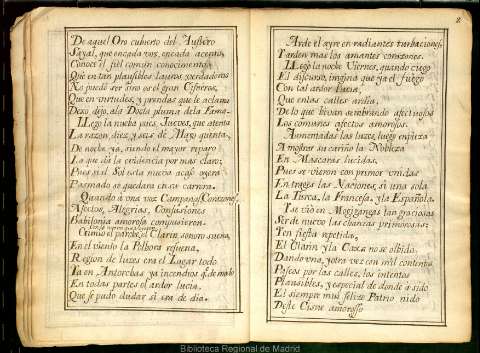 De aquel Oro cubierto del Austero
Sayal, que en cada voz, en cada acento,
Conoce el fiel comun conocimento
Que en tan plausibles Lauros verdaderos
No puede ser sino es el gran Cisneros,
Que en virtudes, y prendas que le aclama
Dexo dijo, a la Docta pluma de la Fama.
LLego la noche pues, Jueves, que atenta
La razon, diez y seis de Mayo quenta,
De noche ya, siendo el mayor reparo
La que dà la evidencia por mas claro;
Pues si el Sol esta nueva acaso oyera
Pasmado se quedara en su carrera.
Quando à una voz Campanas, Corazones,
Afectos, Alegrias, Confusiones
Babilonia amorosa compusieron.
el Clarin sonoro suena,
En el viento la Polbora resuena,
Region de luzes era el Lugar todo
Ya en Antorchas ya incendios q.e de modo
En todas partes el ardor lucia,
Que se pudo dudar si era de dia.
2
Arde el ayre en radiantes turbaciones,
Y arden mas los amantes corazones.
LLegò la noche Viernes, quando ciego
El discurso, imagina que ya el fuego
Con tal ardor lucia,
Que en las calles ardia,
De lo que hiven sembrando afectuosos
Los comunes afectos amorosos.
Aumentadas las luzes, luego empieza
A mostrar su cariño la Nobleza
En Mascaras lucidas,
Pues se vieron con primor unidas
En trages las Naciones, si una sola
La Turca, la Francesa, y la Española.
Ya viò en Mogigangas tan graciosas
Ser de nuevo las chanzas primorosas;
Y en fiesta repetida,
El Clarin y la Caxa no se olbida.
Dando una, y otra vez con mil contentos
Paseos por las calles, los intentos
Plausibles, y especial de donde à sido
El siempre mui felize Patrio nido
Deste Cisne amoroso
Biblioteca Regional de Madrid